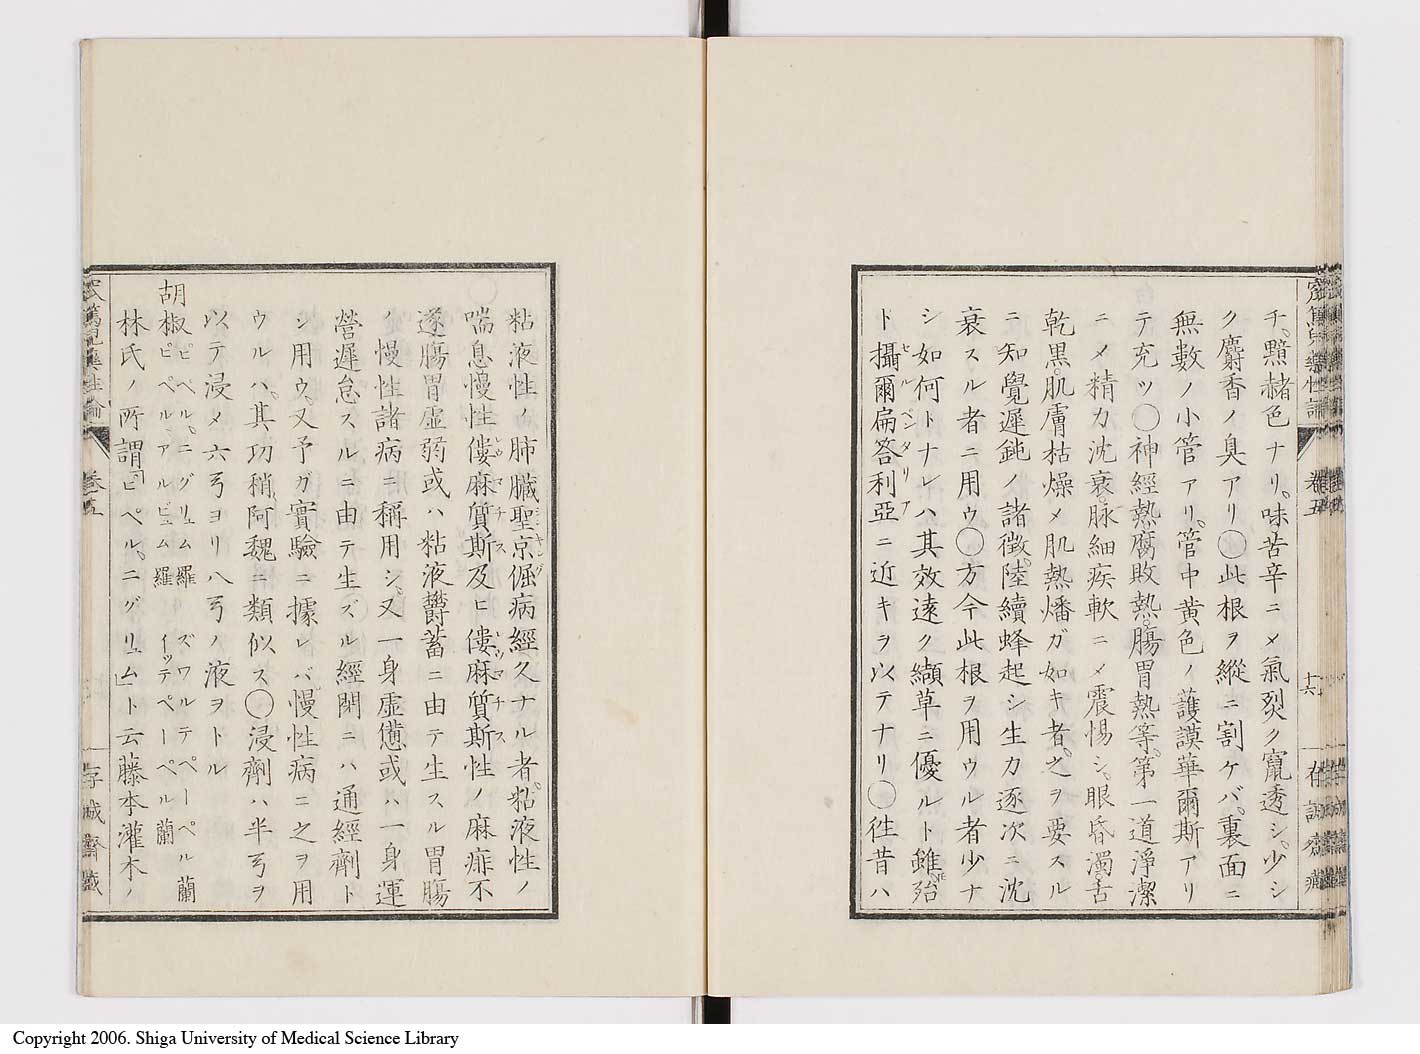 チ黯赭色ナリ味苦辛ニメ氣烈ク竄透シ少シ
ク麝香ノ臭アリ〇此根ヲ縱ニ割ケバ裏面ニ
無數ノ小管アリ管中黄色ノ護謨華爾斯アリ
テ充ツ〇神經熱腐敗熱腸胃熱等第一道淨潔
ニメ精力沈衰脉細疾軟ニメ震惕シ眼昏濁舌
乾黒肌膚枯燥メ肌熱燔ガ如キ者之ヲ要スル
ニ知覺遲鈍ノ諸徴陸續蜂起シ生力逐次ニ沈
衰スル者ニ用ウ〇方今此根ヲ用ウル者少ナ
シ如何トナレハ其效遠ク纈草ニ優ルト雖殆
ト攝爾扁答利亞ニ近キヲ以テナリ〇徃昔ハ
卷五
十六
粘液性ノ肺臓聖京倔病經久ナル者粘液性ノ
喘息慢性僂麻質斯及ヒ僂麻質斯性ノ麻痱不
遂腸胃虚弱或ハ粘液鬱蓄ニ由テ生スル胃腸
ノ慢性諸病ニ稱用シ又一身虚憊或ハ一身運
營遲怠スルニ由テ生ズル經閉ニハ通經劑ト
シ用ウ又予ガ實驗ニ據レバ慢性病ニ之ヲ用
ウルハ其功稍阿魏ニ類似ス〇浸劑ハ半弓ヲ
以テ浸メ六弓ヨリ八弓ノ液ヲトル
胡椒 ピペルニグリュム羅 ズワルテペーペル蘭
ピペルアルビュム羅 イッテペーペル蘭
林氏ノ所謂「ピペルニグリュム」ト云藤本灌木ノ
卷五